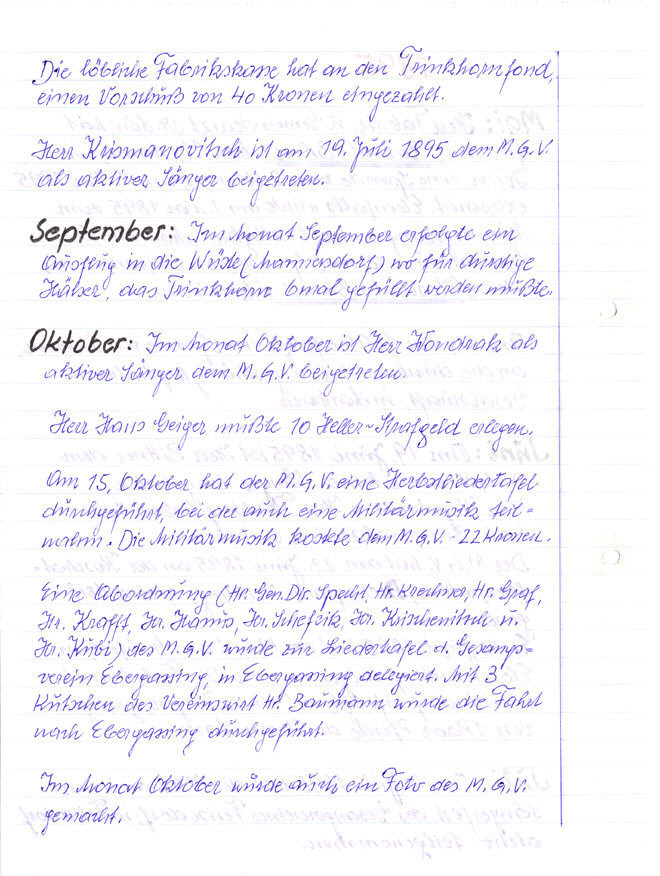 Die löbliche Fabrikskasse hat an den Trinkhornfond,
einen Vorschuß von 40 Kronen eingezahlt.
Herr Krismanovitsch ist am 19. Juli 1895 dem M.G.V.
als aktiver Sänger beigetreten.
September: Im Monat September erfolgte ein
Ausflug in die Wüste (Mannersdorf) wo für durstige
Hälser, das Trinkhorn 6mal gefüllt werden mußte.
Oktober: Im Monat Oktober ist Herr Wondrak als
aktiver Sänger dem M.G.V. beigetreten.
Herr Hans Geiger mußte 10 Heller-Strafgeld erlegen.
Am 15. Oktober hat der M.G.V. eine Herbstliedertafel
durchgeführt, bei der auch eine Militärmusik teil-
nahm. Die Militärmusik kostete dem M.G.V. 22 Kronen.
Eine Abordnung (Hr. Gen. Dir. Specht, Hr. Krechner, Hr. Graf,
Hr. Krafft, Hr. Hanus, Hr. Schefzik, Hr. Krischenitsch u.
Hr. Kubi) des M.G.V. wurde zur Liedertafel d. Gesangs-
verein Ebergassing, in Ebergassing delegiert. Mit 3
Kutschen des Vereinswirt Hr. Baumann wurde die Fahrt
nach Ebergassing durchgeführt.
Im Monat Oktober wurde auch ein Foto des M.G.V.
gemacht.